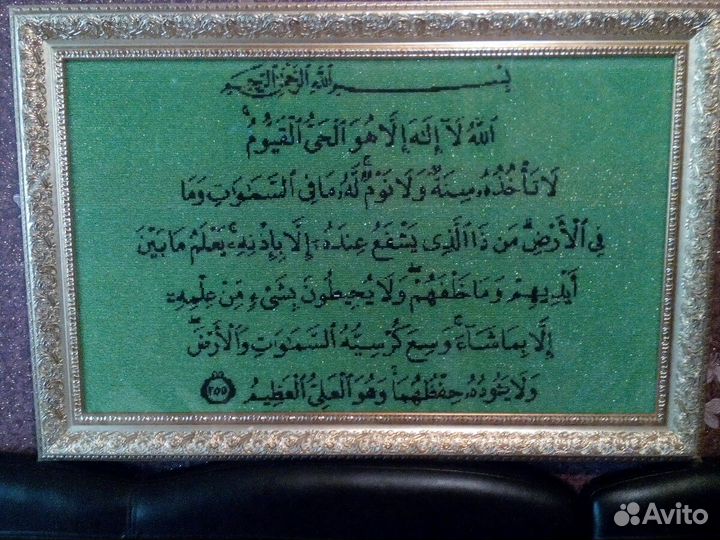 بِسْمِ اللَّهِ الرَّحْمَٰنِ الرَّحِيمِ
اللَّهُ لَا إِلَٰهَ إِلَّا هُوَ الْحَيُّ الْقَيُّومُ ۚ
لَا تَأْخُذُهُ سِنَةٌ وَلَا نَوْمٌ ۚ لَهُ مَا فِي السَّمَاوَاتِ وَمَا
فِي الْأَرْضِ ۗ مَن ذَا الَّذِي يَشْفَعُ عِندَهُ إِلَّا بِإِذْنِهِ ۚ يَعْلَمُ مَا بَيْنَ
أَيْدِيهِمْ وَمَا خَلْفَهُمْ ۖ وَلَا يُحِيطُونَ بِشَيْءٍ مِّنْ عِلْمِهِ
إِلَّا بِمَا شَاءَ ۚ وَسِعَ كُرْسِيُّهُ السَّمَاوَاتِ وَالْأَرْضَ ۖ
وَلَا يَئُودُهُ حِفْظُهُمَا ۚ وَهُوَ الْعَلِيُّ الْعَظِيمُ ٢٥٥
Avito